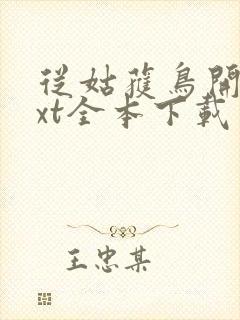 從姑蘿鳥開
xt全本下載
王忠某